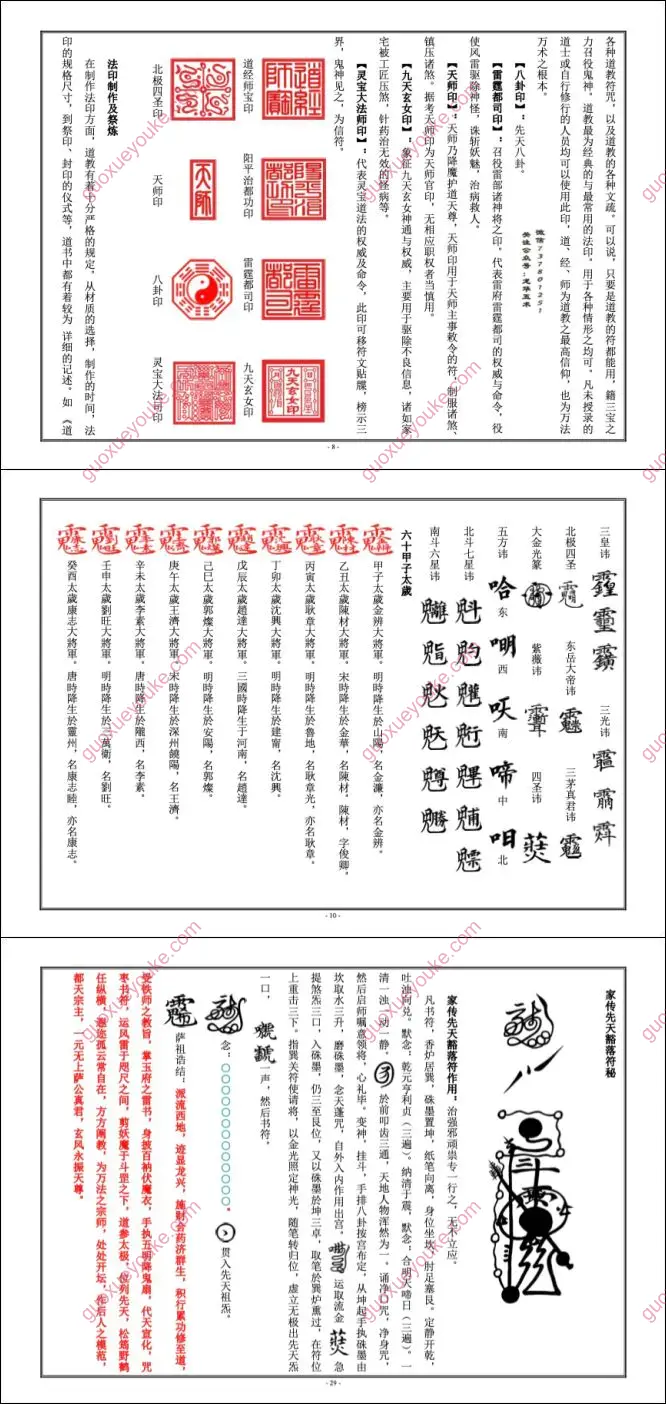 各种道教符咒，以及道教的各种文疏。可以说，只要是道教的符都能用，籍三宝之
力召役鬼神，道教最为经典的与最常用的法印。用于各种情形之均可。凡未授录的
道士或自行修行的人员均可以使用此印，道、经、师为道教之最高信仰，也为万法
万术之根本。
微信737801251
关注公众号：龙华五术
【八卦印】：先天八卦。
【雷霆都司印】：召役雷部诸神将之印。代表雷府雷霆都司的权威与命令，役
使风雷驱除神怪，诛斩妖魅，治病救人。
【天师印】：天师乃降魔护道天尊，天师印用于天师主事敕令的符，制服诸煞、
镇压诸煞。据考天师印为天师官印，无相应职权者当慎用。
【九天玄女印】：象征九天玄女神通与权威，主要用于驱除不良信息，诸如家
宅被工匠压煞，针药治无效的怪病等。
【灵宝大法师印】：代表灵宝道法的权威及命令，此印可移符文贴牒，榜示三
界，鬼神见之，为信符。
道经师宝印
阳平治都功印
雷霆都司印
九天玄女印
九天玄女印
北极四圣印
天师印
天师
八卦印
灵宝大法司印
法印制作及祭炼
在制作法印方面，道教有着十分严格的规定。从材质的选择，制作的时间，法
印的规格尺寸，到祭印、封印的仪式等，道书中都有着较为 详细的记述。如《道
- 8 -
三皇讳
三光讳
北极四圣
东岳大帝讳
三茅真君讳
大金光篆
紫薇讳
四圣讳
五方讳
哈 东
明 西
吠 南
啼 中
咀 北
北斗七星讳
南斗六星讳
六十甲子太歲
甲子太歲金辨大將軍。明時降生於山陽，名金濂，亦名金辨。
乙丑太歲陳材大將軍。宋時降生於金華，名陳材。陳材，字俊卿。
丙寅太歲耿章大將軍。明時降生於魯地，名耿章光，亦名耿章。
丁卯太歲沈興大將軍。明時降生於建甯，名沈興。
戊辰太歲趙達大將軍。三國時降生于河南，名趙達。
己巳太歲郭燦大將軍。明時降生於安陽，名郭燦。
庚午太歲王濟大將軍。宋時降生於深州饒陽，名王濟。
辛未太歲李素大將軍。唐時降生於隴西，名李素。
壬申太歲劉旺大將軍。明時降生於三萬衛，名劉旺。
癸酉太歲康志大將軍。唐時降生於靈州，名康志睦，亦名康志。
- 10 -
家传先天豁落符秘
家传先天豁落符作用：治强邪顽祟专一行之，无不立应。
凡书符，香炉居巽，硃墨置坤，纸笔向离，身位坐坎，肘足塞艮。定静开乾，
吐浊向兑。默念：乾元亨利贞（三遍）。纳清于震，默念：合明天啼日（三遍）。一
清一浊，动一静。於前叩齿三通，天地人物浑然为一。诵净口咒，净身咒，
然后启师嘱意领将，心礼毕。变神，挂斗，手排八卦按宫布定，从坤起手执硃墨由
坎取水三升，磨硃墨，念天蓬咒，自外入内作用出宫，运取流金 急
提煞炁三口，入硃墨，仍三至艮位，又以硃墨於坤三卓，取笔於巽炉熏过，在符位
上重击三下。指巽关符使请将，以金光照定神光，随笔转归位，虚立无极出先天炁
一口，
一声，然后书符，
念：〇〇〇〇〇〇〇〇〇〇〇〇〇。 贯入先天祖炁。
萨祖诰结：派流西地，迹显龙兴，施财合药济群生，积行累功修至道，
受铁师之教旨，掌玉府之雷书，身披百衲伏魔衣，手执五明降鬼扇，代天宣化，咒
枣书符，运风雷于咫尺之间，剪妖魔于斗罡之下，道参太极，位列先天，松筠野鹤
任纵横，遐迩孤云常自在，方方阐教，为万法之宗师，处处开坛，作后人之模范，
都天宗主，一元无上萨公真君，玄风永振天尊。
- 29 -
guoxueyouke.com